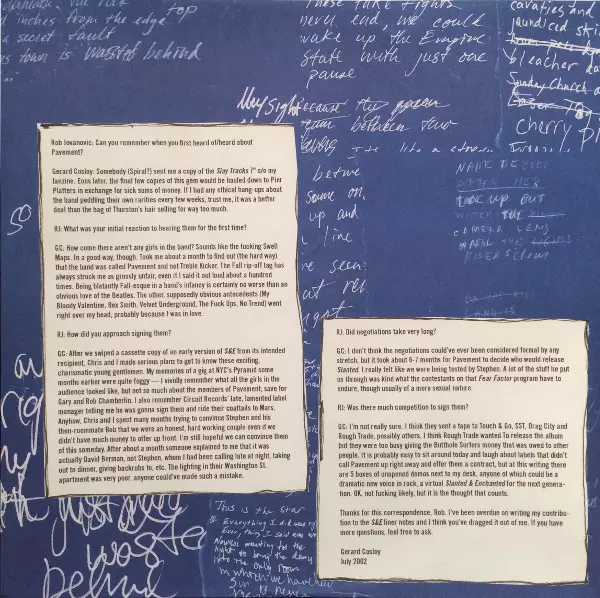 inches from the edge top
secret fault
is town is wasted behind
These take fights
never end, we could
wake up the
state with just one
pause
cavities and
jaundiced
bleacher
Sunday Church
cherry
because the
between two
Rob Jovanovic: Can you remember when you first heard of/heard about
Pavement?
Gerard Cosloy: Somebody (Spiral?) sent me a copy of the Slay Tracks 7" c/o my
fanzine. Eons later, the final few copies of this gem would be hauled down to Pier
Platters in exchange for sick sums of money. If I had any ethical hang-ups about
the band peddling their own rarities every few weeks, trust me, it was a better
deal than the bag of Thurston's hair selling for way too much.
RJ: What was your initial reaction to hearing them for the first time?
GC: How come there aren't any girls in the band? Sounds like the fucking Swell
Maps. In a good way, though. Took me about a month to find out (the hard way)
that the band was called Pavement and not Treble Kicker. The Fall rip-off tag has
always struck me as grossly unfair, even if I said it out loud about a hundred
times. Being blatantly Fall-esque in a band's infancy is certainly no worse than an
obvious love of the Beatles. The other, supposedly obvious antecedents (My
Bloody Valentine, Rex Smith, Velvet Underground, The Fuck Ups, No Trend) went
right over my head, probably because I was in love.
RJ: How did you approach signing them?
GC: After we swiped a cassette copy of an early version of S&E from its intended
recipient, Chris and I made serious plans to get to know these exciting,
charismatic young gentlemen. My memories of a gig at NYC's Pyramid some
months earlier were quite foggy — I vividly remember what all the girls in the
audience looked like, but not so much about the members of Pavement, save for
Gary and Rob Chamberlin. I also remember Circuit Records' late, lamented label
manager telling me he was gonna sign them and ride their coattails to Mars.
Anyhow, Chris and I spent many months trying to convince Stephen and his
then-roommate Bob that we were an honest, hard working couple even if we
didn't have much money to offer up front. I'm still hopeful we can convince them
of this someday. After about a month someone explained to me that it was
actually David Berman, not Stephen, whom I had been calling late at night, taking
out to dinner, giving backrubs to, etc. The lighting in their Washington St.
apartment was very poor, anyone could've made such a mistake.
some on,
up and
line
seen
TOOK UP BUT
CAMERA LENS
RJ: Did negotiations take very long?
GC: I don't think the negotiations could've ever been considered formal by any
stretch, but it took about 6-7 months for Pavement to decide who would release
Slanted. I really felt like we were being tested by Stephen. A lot of the stuff he put
us through was kind what the contestants on that Fear Factor program have to
endure, though usually of a more sexual nature.
RJ: Was there much competition to sign them?
GC: I'm not really sure. I think they sent a tape to Touch & Go, SST, Drag City and
Rough Trade, possibly others. I think Rough Trade wanted To release the album
but they were too busy giving the Butthole Surfers money that was owed to other
people. It is probably easy to sit around today and laugh about labels that didn't
call Pavement up right away and offer them a contract, but at this writing there
are 5 boxes of unopened demos next to my desk, anyone of which could be a
dramatic new voice in rock, a virtual Slanted & Enchanted for the next genera-
tion. OK, not fucking likely, but it is the thought that counts.
Thanks for this correspondence, Rob. I've been overdue on writing my contribu-
tion to the S&E liner notes and I think you've dragged it out of me. If you have
more questions, feel free to ask.
Gerard Cosloy
July 2002
just
waste
behind
This is the star
Everything I did was
Everything I said was
into the only room
in which we have